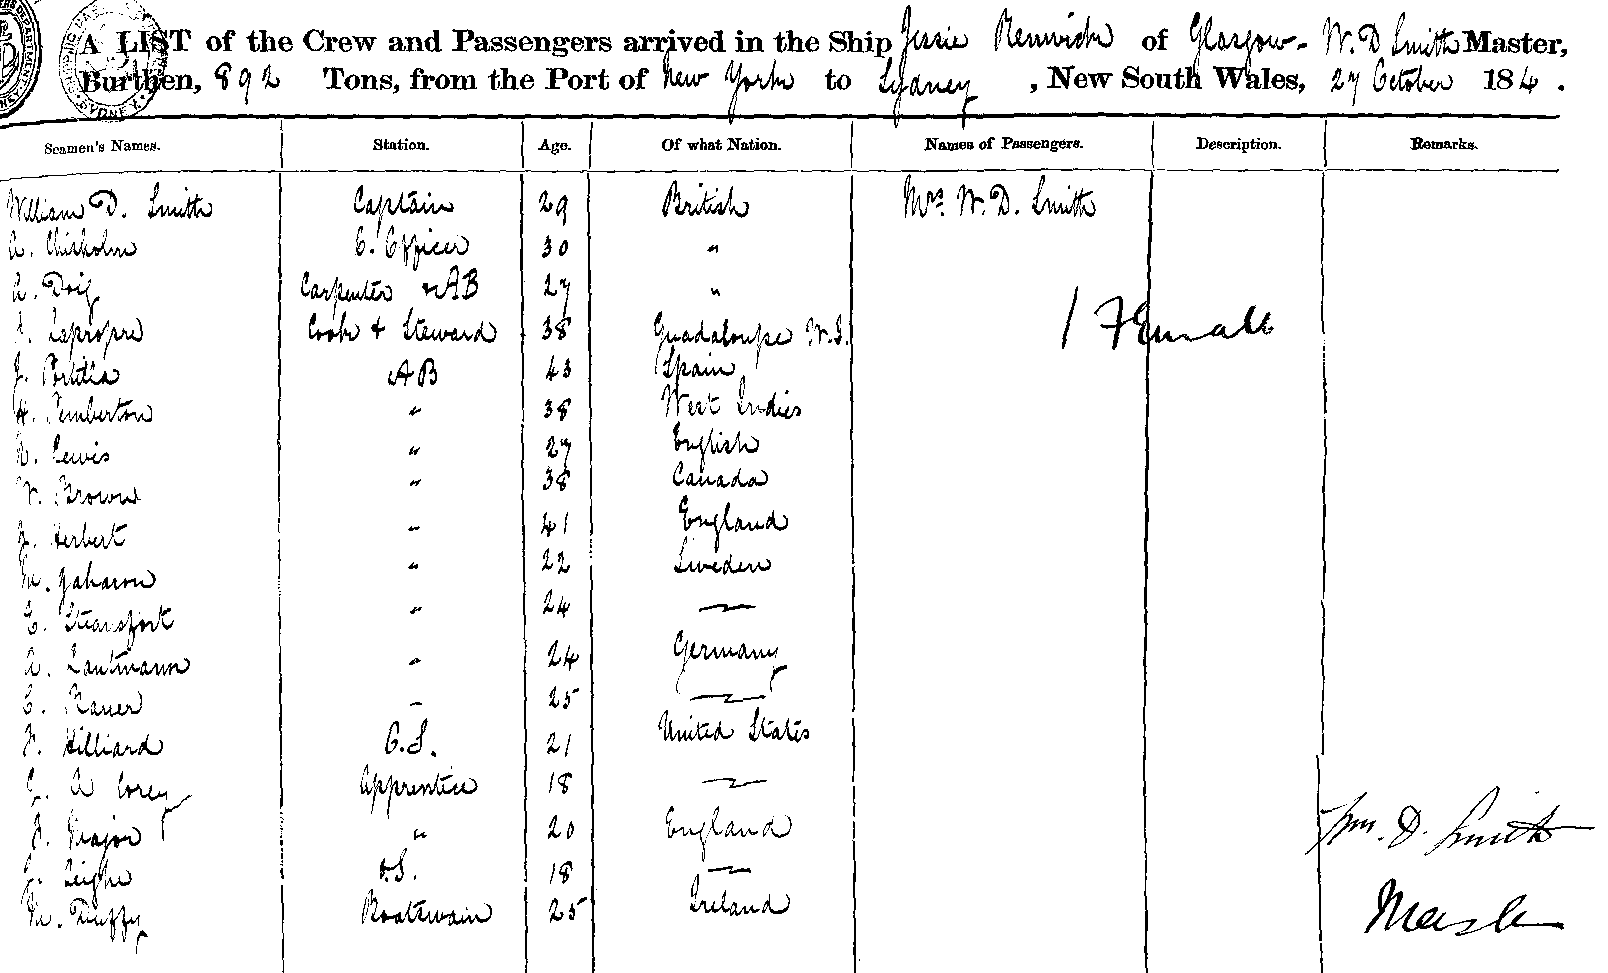 A LIST of the Crew and Passengers arrived in the Ship Jessie Renwick of Glasgow - W. D Smith Master,
Burthen, 892 Tons, from the Port of New York to Sydney, New South Wales, 27 October 184 .
Seamen's Names. Station. Age. Of what Nation. Names of Passengers. Description. Remarks.
William D. Smith Captain 29 British Mrs. W. D. Smith
A. Chisholm C. Officer 30 "
A. Doig Carpenter & AB 27 "
Cook & Steward 38 Guadaloupe W.I.
1 Female
J. AB 43 Spain
H. Pemberton " 38 West Indies
Lewis " 27 English
Brown " 38 Canada
J. Herbert " 41 England
M. " 22 Sweden
" 24 —
A. Lautmann " 24 Germany
" 25 —
Hilliard O.S. 21 United States
A Corey Apprentice 18 —
Major " 20 England
Wm. D. Smith
O.S. 18 —
M. Duffy Boatswain 25 Ireland
Master